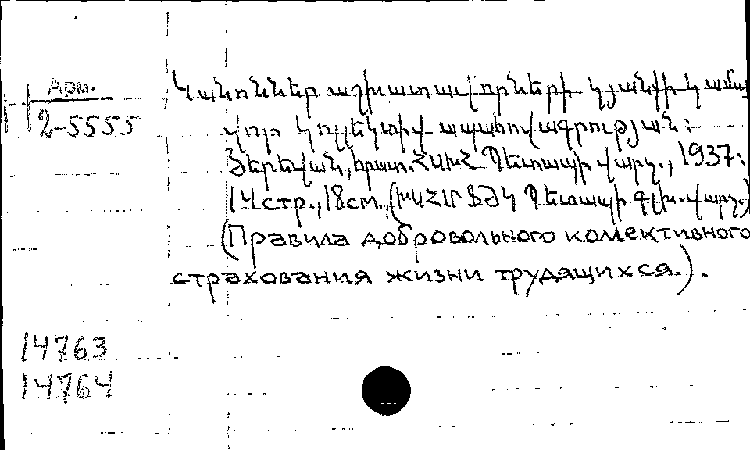 Арм.
2-5555
Կանոններ աշխատավորների կյանքի կամա
վոր կոլեկտիվ ապահովագրության:
Յերեվան, հրատ. ՀՍԽՀ Պետապ վարչ., 1937:
14 стр., 18 см.
Պետապ գլխ. վարչ.)
(Правила добровольного колективного
страхования жизни трудящихся.).
14763
14764